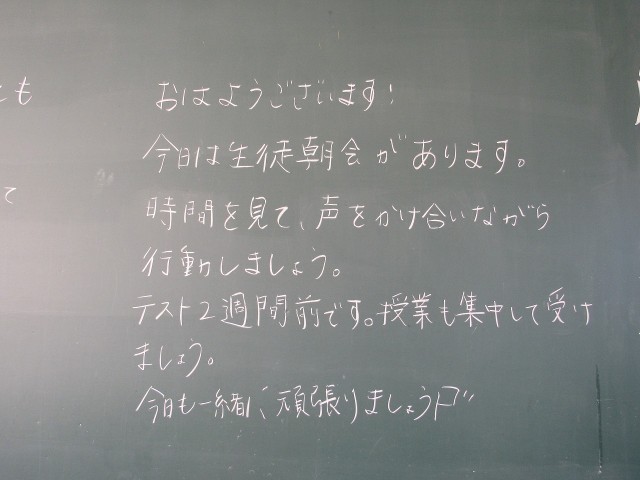 とも
て
おはようございます!
今日は生徒朝会があります。
時間を見て、声をかけ合いながら
行動しましょう。
テスト2週間前です。授業も集中して受け
ましょう。
今日も一緒に頑張りましょう